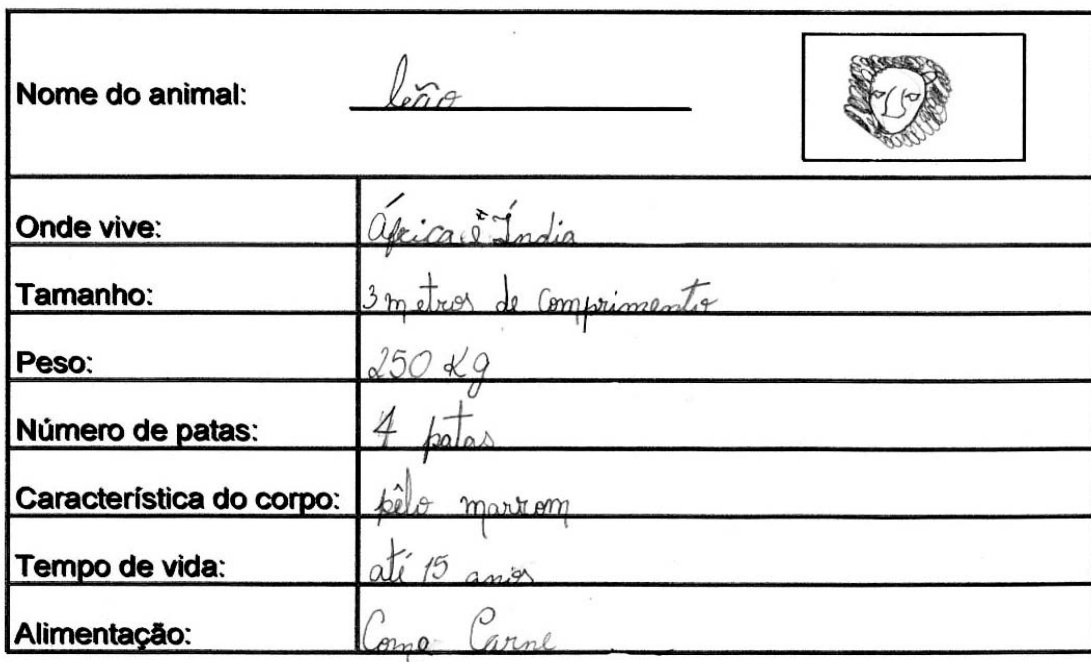 Nome do animal: leão
Onde vive: África e Índia
Tamanho: 3 metros de comprimento
Peso: 250 Kg
Número de patas: 4 patas
Característica do corpo: pêlo marrom
Tempo de vida: até 15 anos
Alimentação: Come Carne